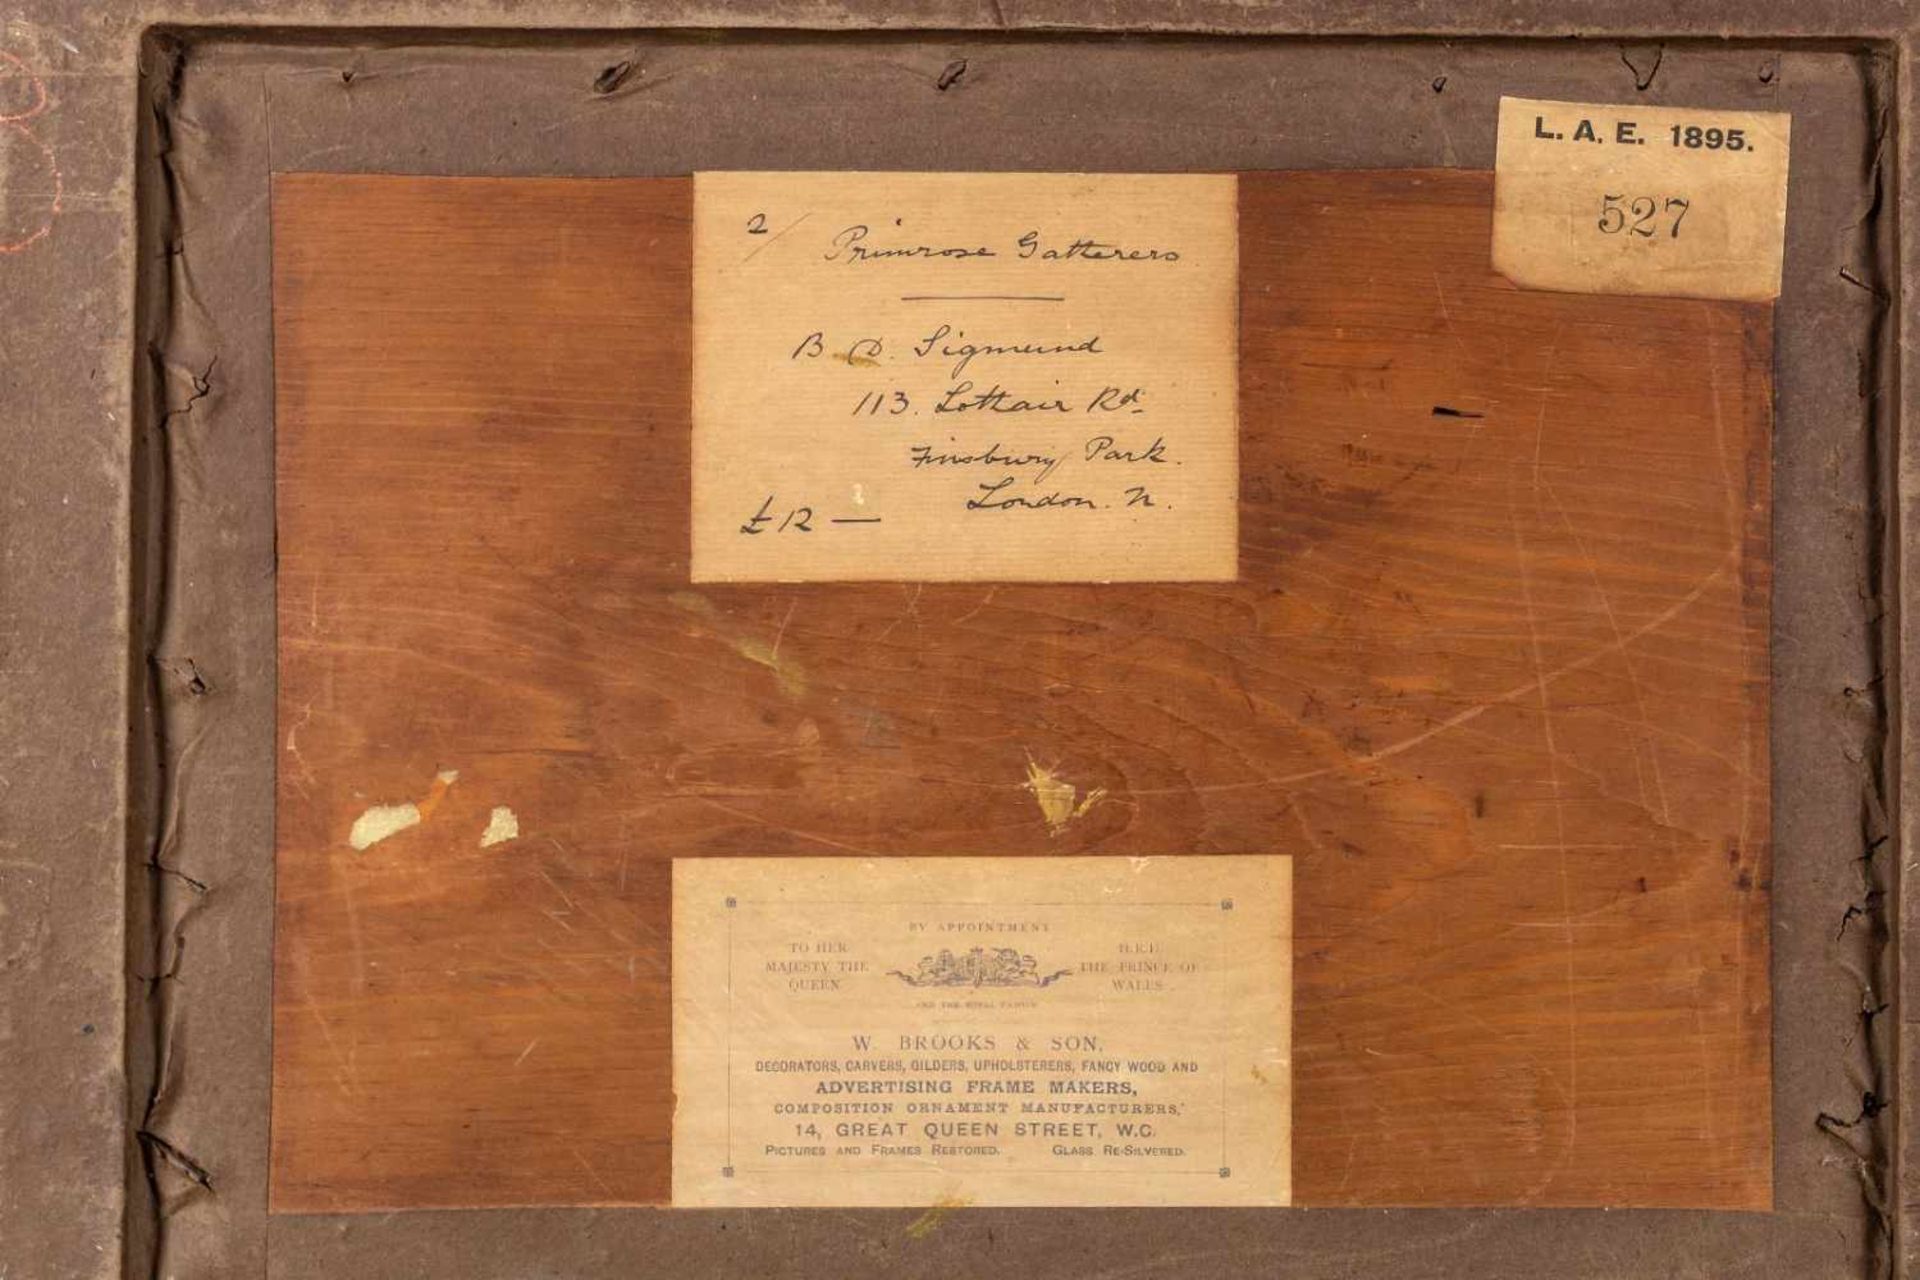 L. A. E. 1895.
527
2/
Primrose Gatherers
B. D. Sigmund
113. Lothair Rd.
Finsbury Park.
London. N.
£12 —
BY APPOINTMENT
TO HER MAJESTY THE QUEEN
H.R.H. THE PRINCE OF WALES.
AND THE ROYAL FAMILY
W. BROOKS & SON,
DECORATORS, CARVERS, GILDERS, UPHOLSTERERS, FANCY WOOD AND
ADVERTISING FRAME MAKERS,
COMPOSITION ORNAMENT MANUFACTURERS,
14, GREAT QUEEN STREET, W.C.
PICTURES AND FRAMES RESTORED. GLASS RE-SILVERED.